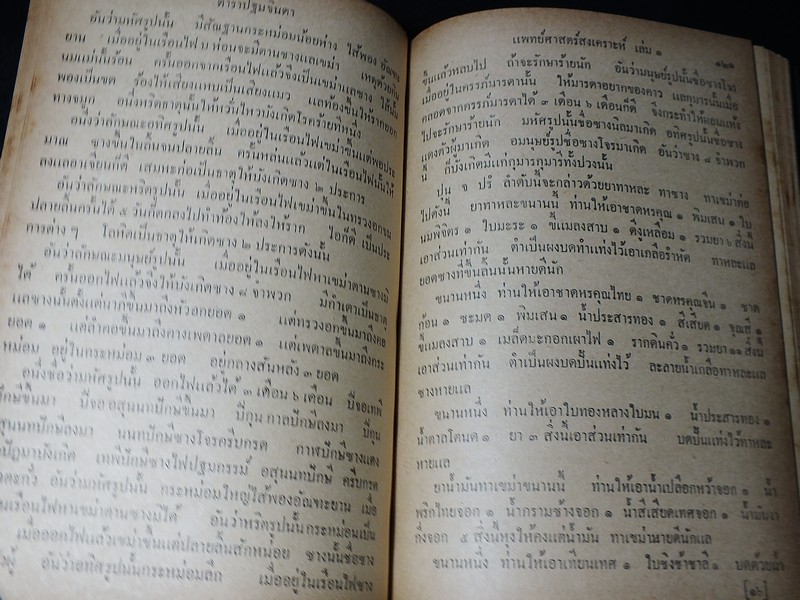 ตำราปฐมจินดา
อันว่ามหัศรูปนั้น มีสัณฐานกระหม่อมน้อยห่าง ไส้พอง อัณฑะ
ยาน เมื่ออยู่ในเรือนไฟ ท่อนจะมีตานซางแลเขม่า เหตุด้วยกิน
นมแม่นั้นร้อน ครั้นออกจากเรือนไฟแล้วจึงเป็นเขม่าแลซาง ไส้นั้น
พองเป็นขด ร้องไห้เสียงแหบเป็นเสียงแมว แลท้องขึ้นให้รากออก
ทางจมูก อนึ่งหริดธาตุนั้นให้หวั่นไหวบังเกิดโรคร้ายที่หนึ่ง
อนึ่งว่าลักษณะอทิศรูปนั้น เมื่ออยู่ในเรือนไฟเขม่าขึ้นแต่พอประ
มาณ ซางขึ้นในลิ้นจนปลายลิ้น ครั้นหล่นแล้วแต่ในเรือนไฟนั้นให้
ลงแลอาเจียนก็ดี เสมหะก่อเป็นธาตุให้บังเกิดซาง ๒ ประการ
อันว่าลักษณะหริตรูปนั้น เมื่ออยู่ในเรือนไฟเขม่าขึ้นในทรวงอกบน
ปลายลิ้นครั้นได้ ๕ วันก็ตกลงไปทำท้องให้ลงให้ราก ไอก็ดี เป็นประ
การต่าง ๆ โลหิตเป็นธาตุให้เกิดซาง ๒ ประการดังนั้น
อันว่าลักษณะมนุษย์รูปนั้น เมื่ออยู่ในเรือนไฟหาเขม่าตานซางมิ
ได้ ครั้นออกไฟแล้วจึงให้บังเกิดซาง ๘ จำพวก มีกำเดาเป็นธาตุ
แลซางนั้นตั้งแต่นาภีขึ้นมาถึงหัวอกยอด ๑ แต่ทรวงอกขึ้นมาถึงคอ
ยอด ๑ แต่ลำคอขึ้นมาถึงคางเพดาลยอด ๑ แต่เพดาลขึ้นมาถึงกระ
หม่อม อยู่ในกระหม่อม ๓ ยอด อยู่กลางสันหลัง ๓ ยอด
อนึ่งชื่อว่ามหัศรูปนั้น ออกไฟแล้วได้ ๓ เดือน ๖ เดือน ปีจอเทพี
ปักษีขึ้นมา ปีจออสุนนทปักษีขึ้นมา ปีกุน กาลปักษีลงมา ปีกุน
สุนนทปักษีลงมา นนทปักษีซางโจรครีบกรด กาฬปักษีซางแดง
ปัฎมาบังเกิด เทพีปักษีซางไฟปฐมกรรม์ อสุนนทปักษี ครีบกรด
ดะกั่ว อันว่ามหัศรูปนั้น กระหม่อมใหญ่ไส้พองอัณฑะยาน เมื่อ
เรือนไฟหาเขม่าตานซางมิได้ อันว่าหริตรูปนั้นกระหม่อมเป็น
เมื่อออกไฟแล้วเขม่าขึ้นแต่ปลายลิ้นสักหน่อย ซางนั้นชื่อซาง
ผู้ อันว่าอทิศรูปนั้นกระหม่อมลึก เมื่ออยู่ในเรือนไฟซาง
แพทย์ศาสตร์สงเคราะห์ เล่ม ๑ ๑๒๑
ขึ้นแล้วหลบไป ถ้าจะรักษาร้ายนัก อันว่ามนุษย์รูปนั้นชื่อซางโจร
เมื่ออยู่ในครรภ์มารดานั้น ให้มารดาอยากของคาว แลกุมารนั้นเมื่อ
คลอดจากครรภ์มารดาได้ ๓ เดือน ๖ เดือนก็ดี จึงกระทำให้ผอมแห้ง
ไปจะรักษาร้ายนัก มหัศรูปนั้นชื่อซางนิลมาเกิด อทิศรูปนั้นชื่อซาง
แดงตัวผู้มาเกิด อมมนุษย์รูปชื่อซางโจรมาเกิด อันว่าซาง ๘ จำพวก
นี้ ก็บังเกิดมีแก่กุมารกุมารีทั้งปวงนั้น
ปุน จ ปรํ ลำดับนี้จะกล่าวด้วยยาทาหละ ทาซาง ทาเขม่าต่อ
ไปดังนี้ ยาทาหละขนานนี้ ท่านให้เอาชาดหรคุณ ๑ พิมเสน ๑ ใบ
นมพิจิตร ๑ ใบมะระ ๑ ขี้แมลงสาบ ๑ ดีงูเหลือม ๑ รวมยา ๖ สิ่งนี้
เอาส่วนเท่ากัน ตำเป็นผงบดทำแท่งไว้เอาเกลือรำหัด ทาหละแล
ยอดซางที่ขึ้นลิ้นนั้นหายดีนัก
ขนานหนึ่ง ท่านให้เอาชาดหรคุณไทย ๑ ชาดหรคุณจีน ๑ ชาด
ก้อน ๑ ชะมด ๑ พิมเสน ๑ น้ำประสารทอง ๑ สีเสียด ๑ จุณสี ๑
ขี้แมลงสาบ ๑ เมล็ดมะกอกเผาไฟ ๑ รากดินคั่ว ๑ รวมยา ๑๑ สิ่งนี้
เอาส่วนเท่ากัน ตำเป็นผงบดปั้นแท่งไว้ ละลายน้ำเกลือทาหละแล
ซางหายแล
ขนานหนึ่ง ท่านให้เอาใบทองหลางใบมน ๑ น้ำประสารทอง ๑
น้ำตาลโตนด ๑ ยา ๓ สิ่งนี้เอาส่วนเท่ากัน บดปั้นแท่งไว้ทาหละ
หายแล
ยาน้ำมันทาเขม่าขนานนี้ ท่านให้เอาน้ำเปลือกหว้าจอก ๑ น้ำ
พริกไทยจอก ๑ น้ำกรามช้างจอก ๑ น้ำสีเสียดเทศจอก ๑ น้ำมันงา
กึ่งจอก ๕ สิ่งนี้หุงให้คงแต่น้ำมัน ทาเขม่าหายดีนักแล
ขนานหนึ่ง ท่านให้เอาเทียนเทศ ๑ ใบชิงช้าชาลี ๑ บดด้วยน้ำ
[๑๖]